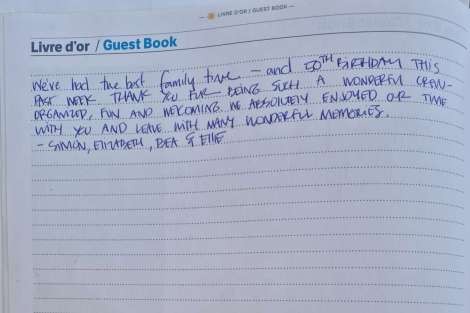 LIVRE D'OR / GUEST BOOK
Livre d'or / Guest Book
We've had the best family time - and 50TH BIRTHDAY THIS
PAST WEEK. THANK YOU FOR BEING SUCH A WONDERFUL CREW-
ORGANIZED, FUN AND WELCOMING. WE ABSOLUTELY ENJOYED OR TIME
WITH YOU AND LEAVE WITH MANY WONDERFUL MEMORIES.
- SIMON, ELIZABETH, BEA & ELLIE